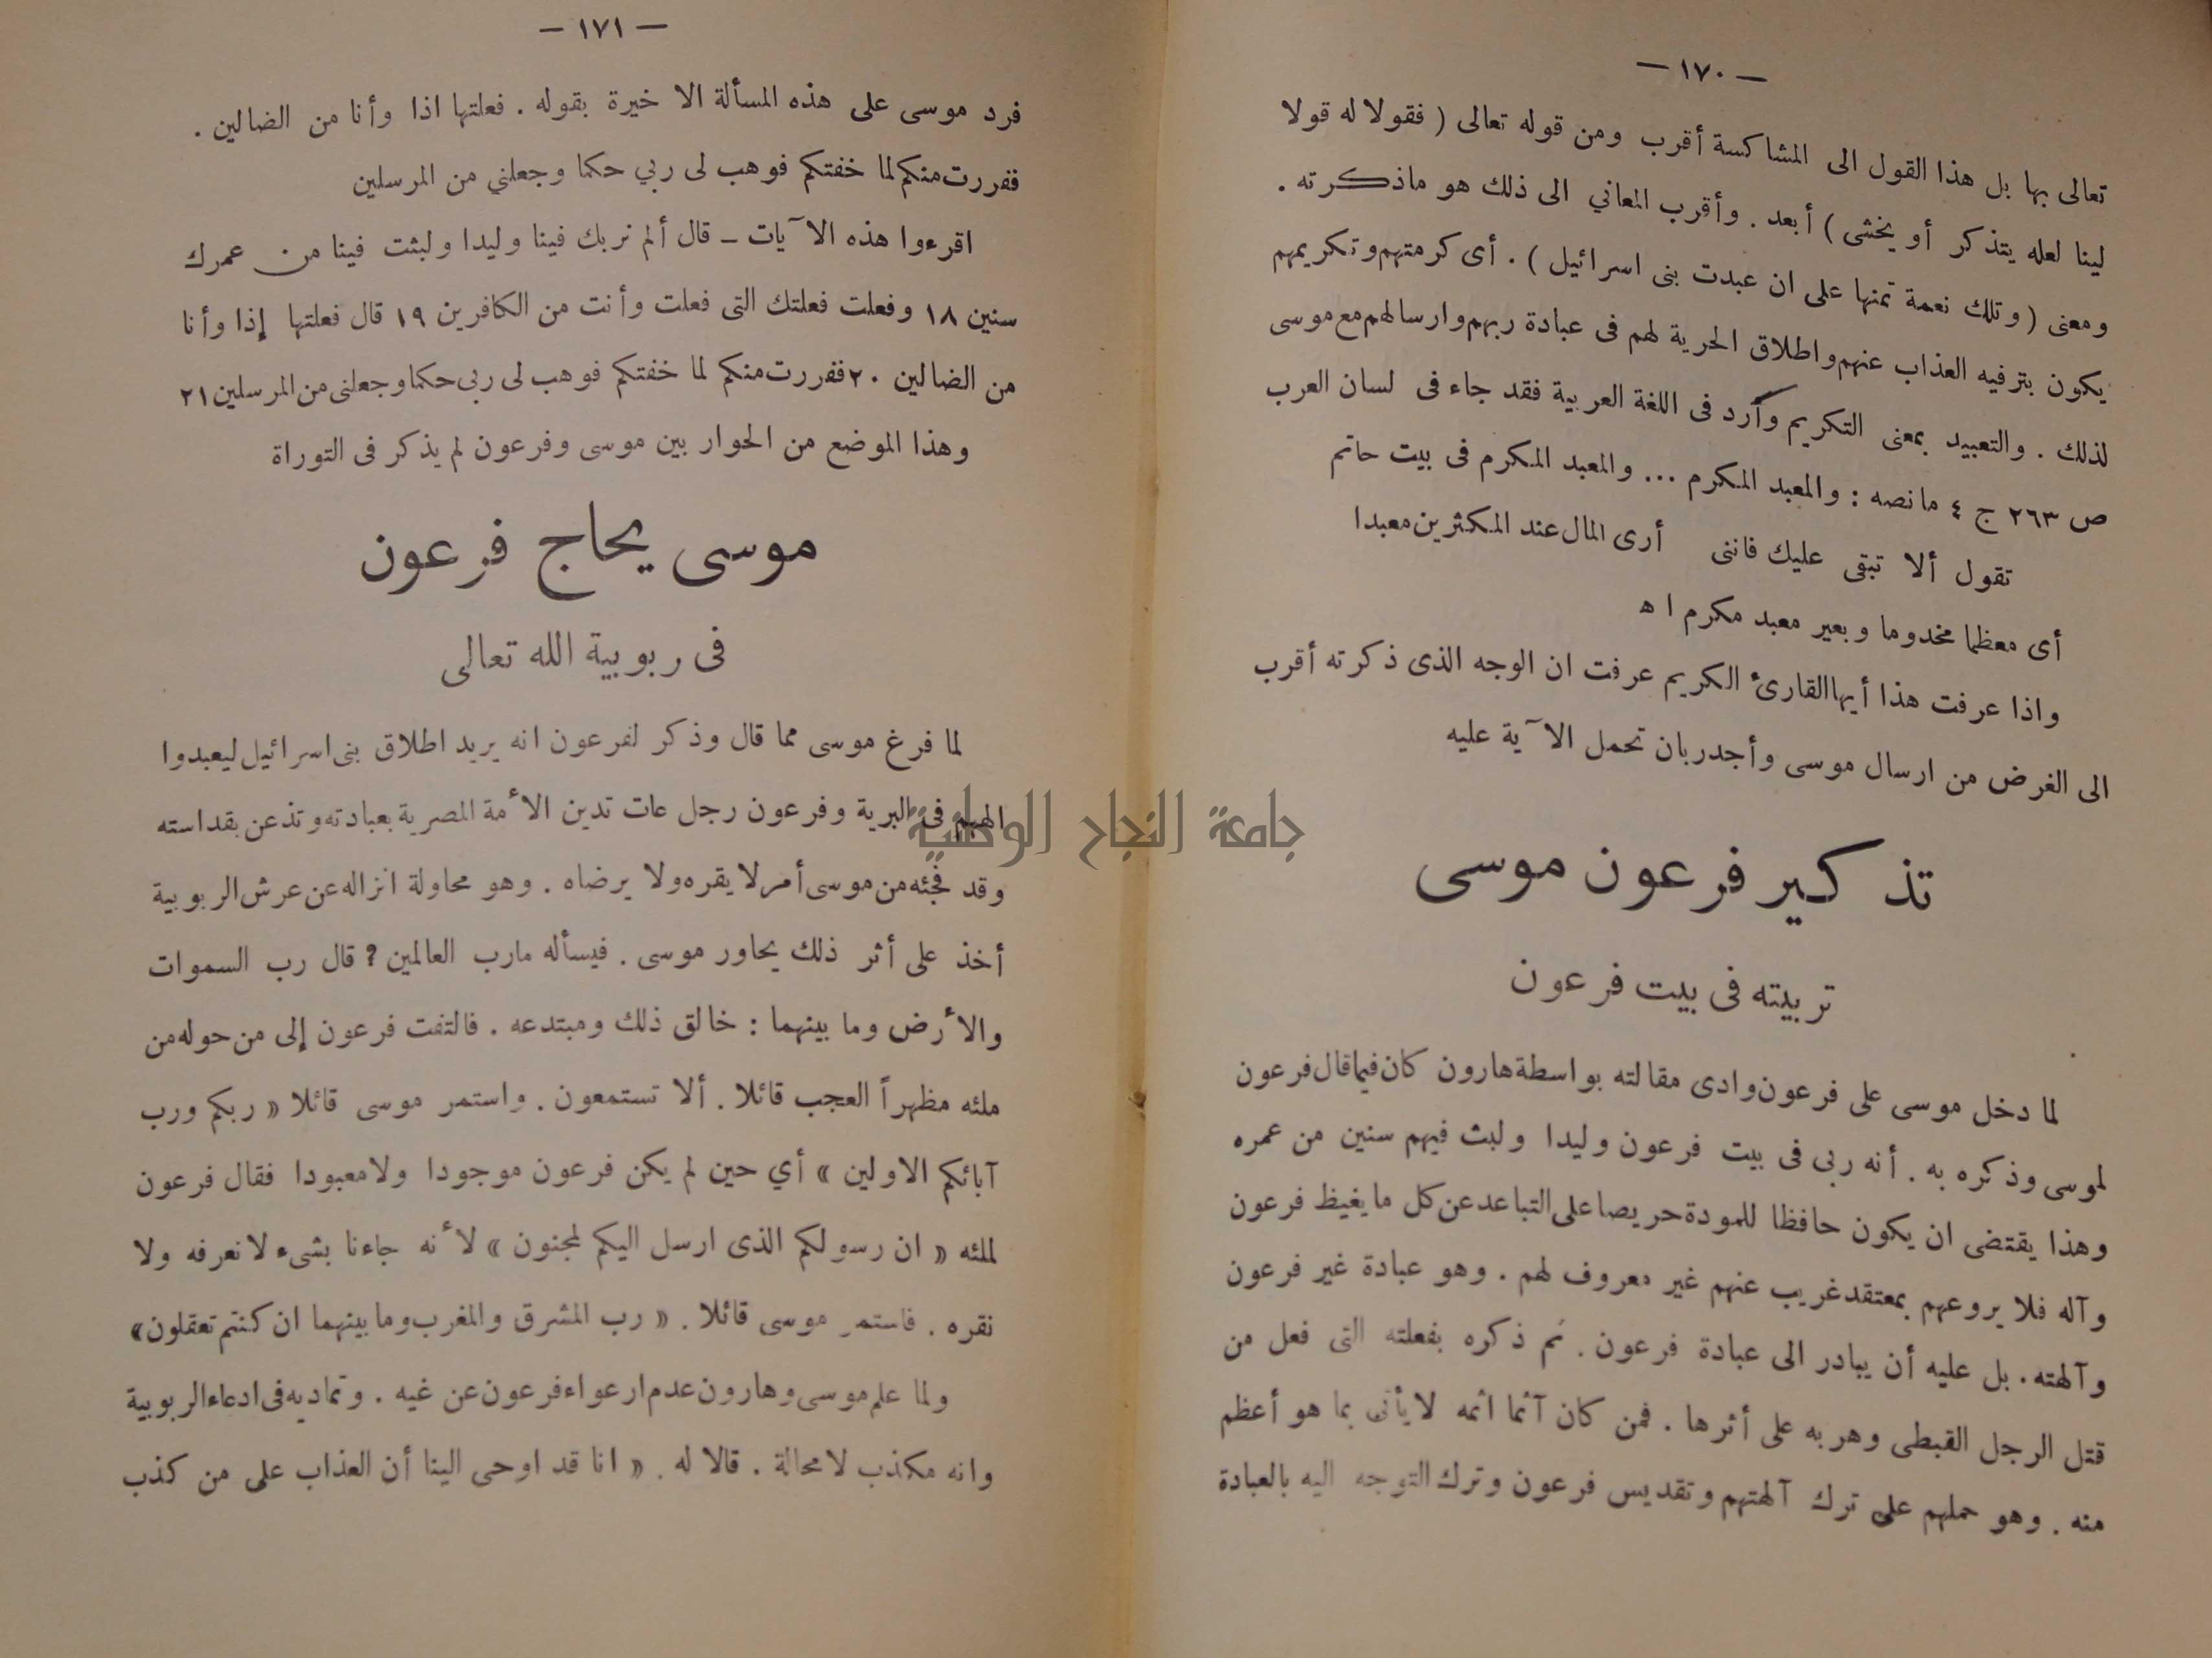 — ١٧٠ —
تعالى بها بل هذا القول الى المشاكسة أقرب ومن قوله تعالى ( فقولا له قولا
لينا لعله يتذكر أو يخشى ) أبعد . وأقرب المعاني الى ذلك هو ماذكرته .
ومعنى ( وتلك نعمة تمنها على ان عبدت بنى اسرائيل ) . أى كرمتهم وتكريمهم
يكون بترفيه العذاب عنهم واطلاق الحرية لهم فى عبادة ربهم وارسالهم مع موسى
لذلك . والتعبيد بمعنى التكريم وآرد فى اللغة العربية فقد جاء فى لسان العرب
ص ٢٦٣ ج ٤ مانصه : والمعبد المكرم ... والمعبد المكرم فى بيت حاتم
تقول ألا تبقى عليك فاننى أرى المال عند المكثرين معبدا
أى معظما مخدوما وبعير معبد مكرم ا ه
واذا عرفت هذا أيها القارئ الكريم عرفت ان الوجه الذى ذكرته أقرب
الى الغرض من ارسال موسى وأجدر بان تحمل الآية عليه
تذكير فرعون موسى
تربيته فى بيت فرعون
لما دخل موسى على فرعون وادى مقالته بواسطة هارون كان فيما قال فرعون
لموسى وذكره به . أنه ربى فى بيت فرعون وليدا ولبث فيهم سنين من عمره
وهذا يقتضى ان يكون حافظا للمودة حريصا على التباعد عن كل ما يغيظ فرعون
وآله فلا يروعهم بمعتقد غريب عنهم غير معروف لهم . وهو عبادة غير فرعون
وآلهته . بل عليه أن يبادر الى عبادة فرعون . ثم ذكره بفعلته التى فعل من
قتل الرجل القبطى وهربه على أثرها . فمن كان آثما اثمه لا يأتى بما هو أعظم
منه . وهو حملهم على ترك آلهتهم وتقديس فرعون وترك التوجه اليه بالعبادة
— ١٧١ —
فرد موسى على هذه المسألة الاخيرة بقوله . فعلتها اذا وأنا من الضالين .
ففررت منكم لما خفتكم فوهب لى ربي حكما وجعلني من المرسلين
اقرءوا هذه الآيات – قال ألم نربك فينا وليدا ولبثت فينا من عمرك
سنين ١٨ وفعلت فعلتك التى فعلت وأنت من الكافرين ١٩ قال فعلتها إذا وأنا
من الضالين ٢٠ ففررت منكم لما خفتكم فوهب لى ربى حكما وجعلنى من المرسلين ٢١
وهذا الموضع من الحوار بين موسى وفرعون لم يذكر فى التوراة
موسى يحاج فرعون
فى ربوبية الله تعالى
لما فرغ موسى مما قال وذكر لفرعون انه يريد اطلاق بنى اسرائيل ليعبدوا
الههم فى البرية وفرعون رجل عات تدين الأمة المصرية بعبادته وتذعن بقداسته
وقد فجئه من موسى أمر لا يقره ولا يرضاه . وهو محاولة انزاله عن عرش الربوبية
أخذ على أثر ذلك يحاور موسى . فيسأله مارب العالمين ? قال رب السموات
والأرض وما بينهما : خالق ذلك ومبتدعه . فالتفت فرعون إلى من حوله من
ملئه مظهراً العجب قائلا . ألا تستمعون . واستمر موسى قائلا « ربكم ورب
آبائكم الاولين » أي حين لم يكن فرعون موجودا ولا معبودا فقال فرعون
لملئه « ان رسولكم الذى ارسل اليكم لمجنون » لأنه جاءنا بشىء لا نعرفه ولا
نقره . فاستمر موسى قائلا . « رب المشرق والمغرب وما بينهما ان كنتم تعقلون »
ولما علم موسى وهارون عدم ارعواء فرعون عن غيه . وتماديه فى ادعاء الربوبية
وانه مكذب لا محالة . قالا له . « انا قد اوحى الينا أن العذاب على من كذب
جامعة النجاح الوطنية